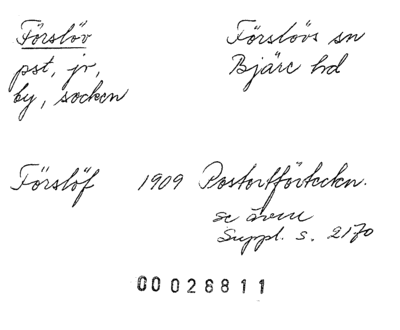 Förslöv
pst, jv,
by, socken
Förslövs sn
Bjäre hd
Förslöf 1909 Postortförteckn.
se även
Suppl. s. 2170
00028811